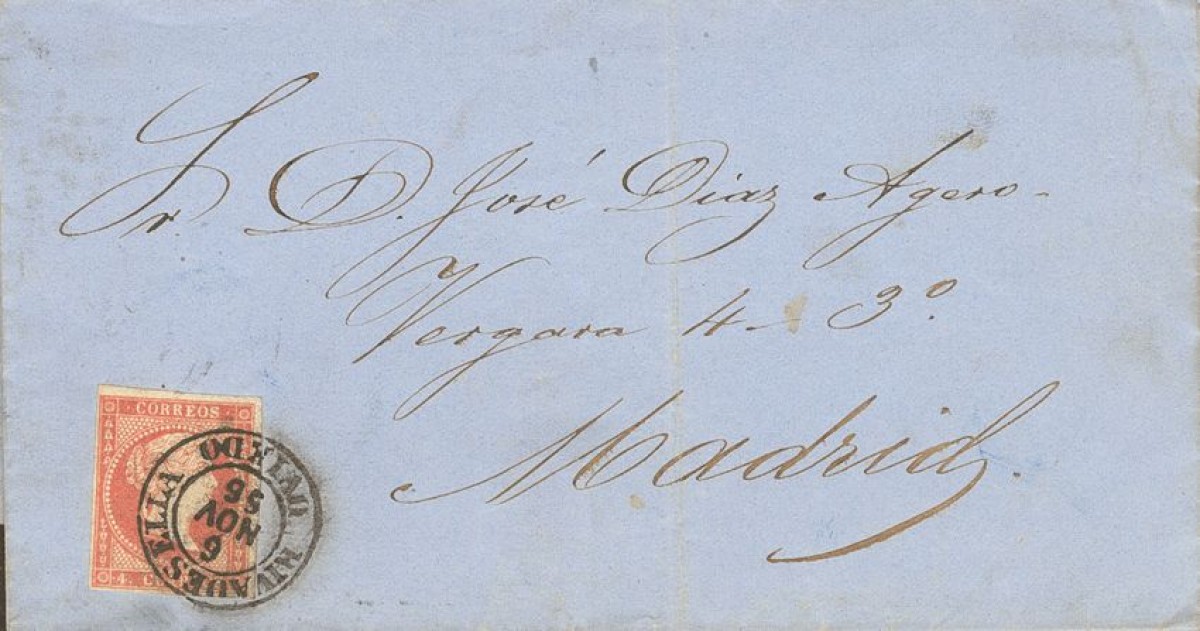 Sr. D. José Diaz Agero-
Vergara 4-3º.
Madrid.
CORREOS
4. C
RIVADESELLA OVIEDO
6
NOV
56